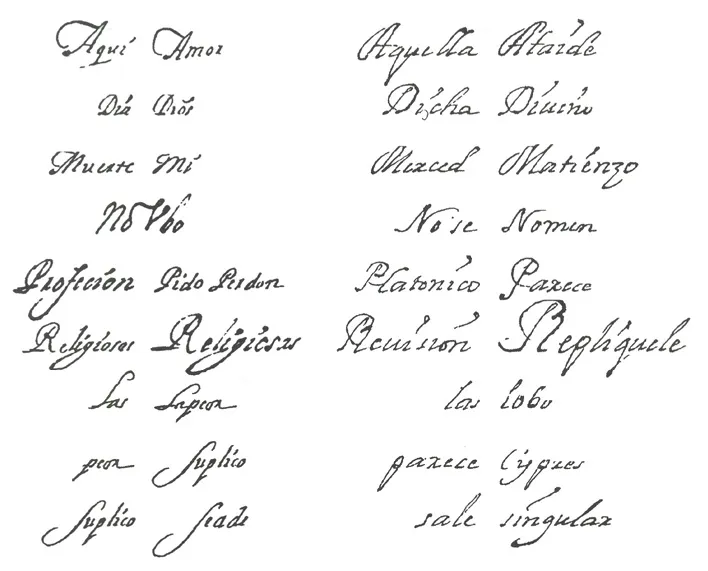 Aqui Amor Aquella Ataide
Dia Dios Dicha Diuino
Muerte Mi Merced Matienzo
No Vbo No se Nomen
Profecion Pido Perdon Platonico Parece
Religiosas Religiosas Reuision Repliquele
las la peor las lobo
peor suplico parece Cypres
suplico seade sale singular